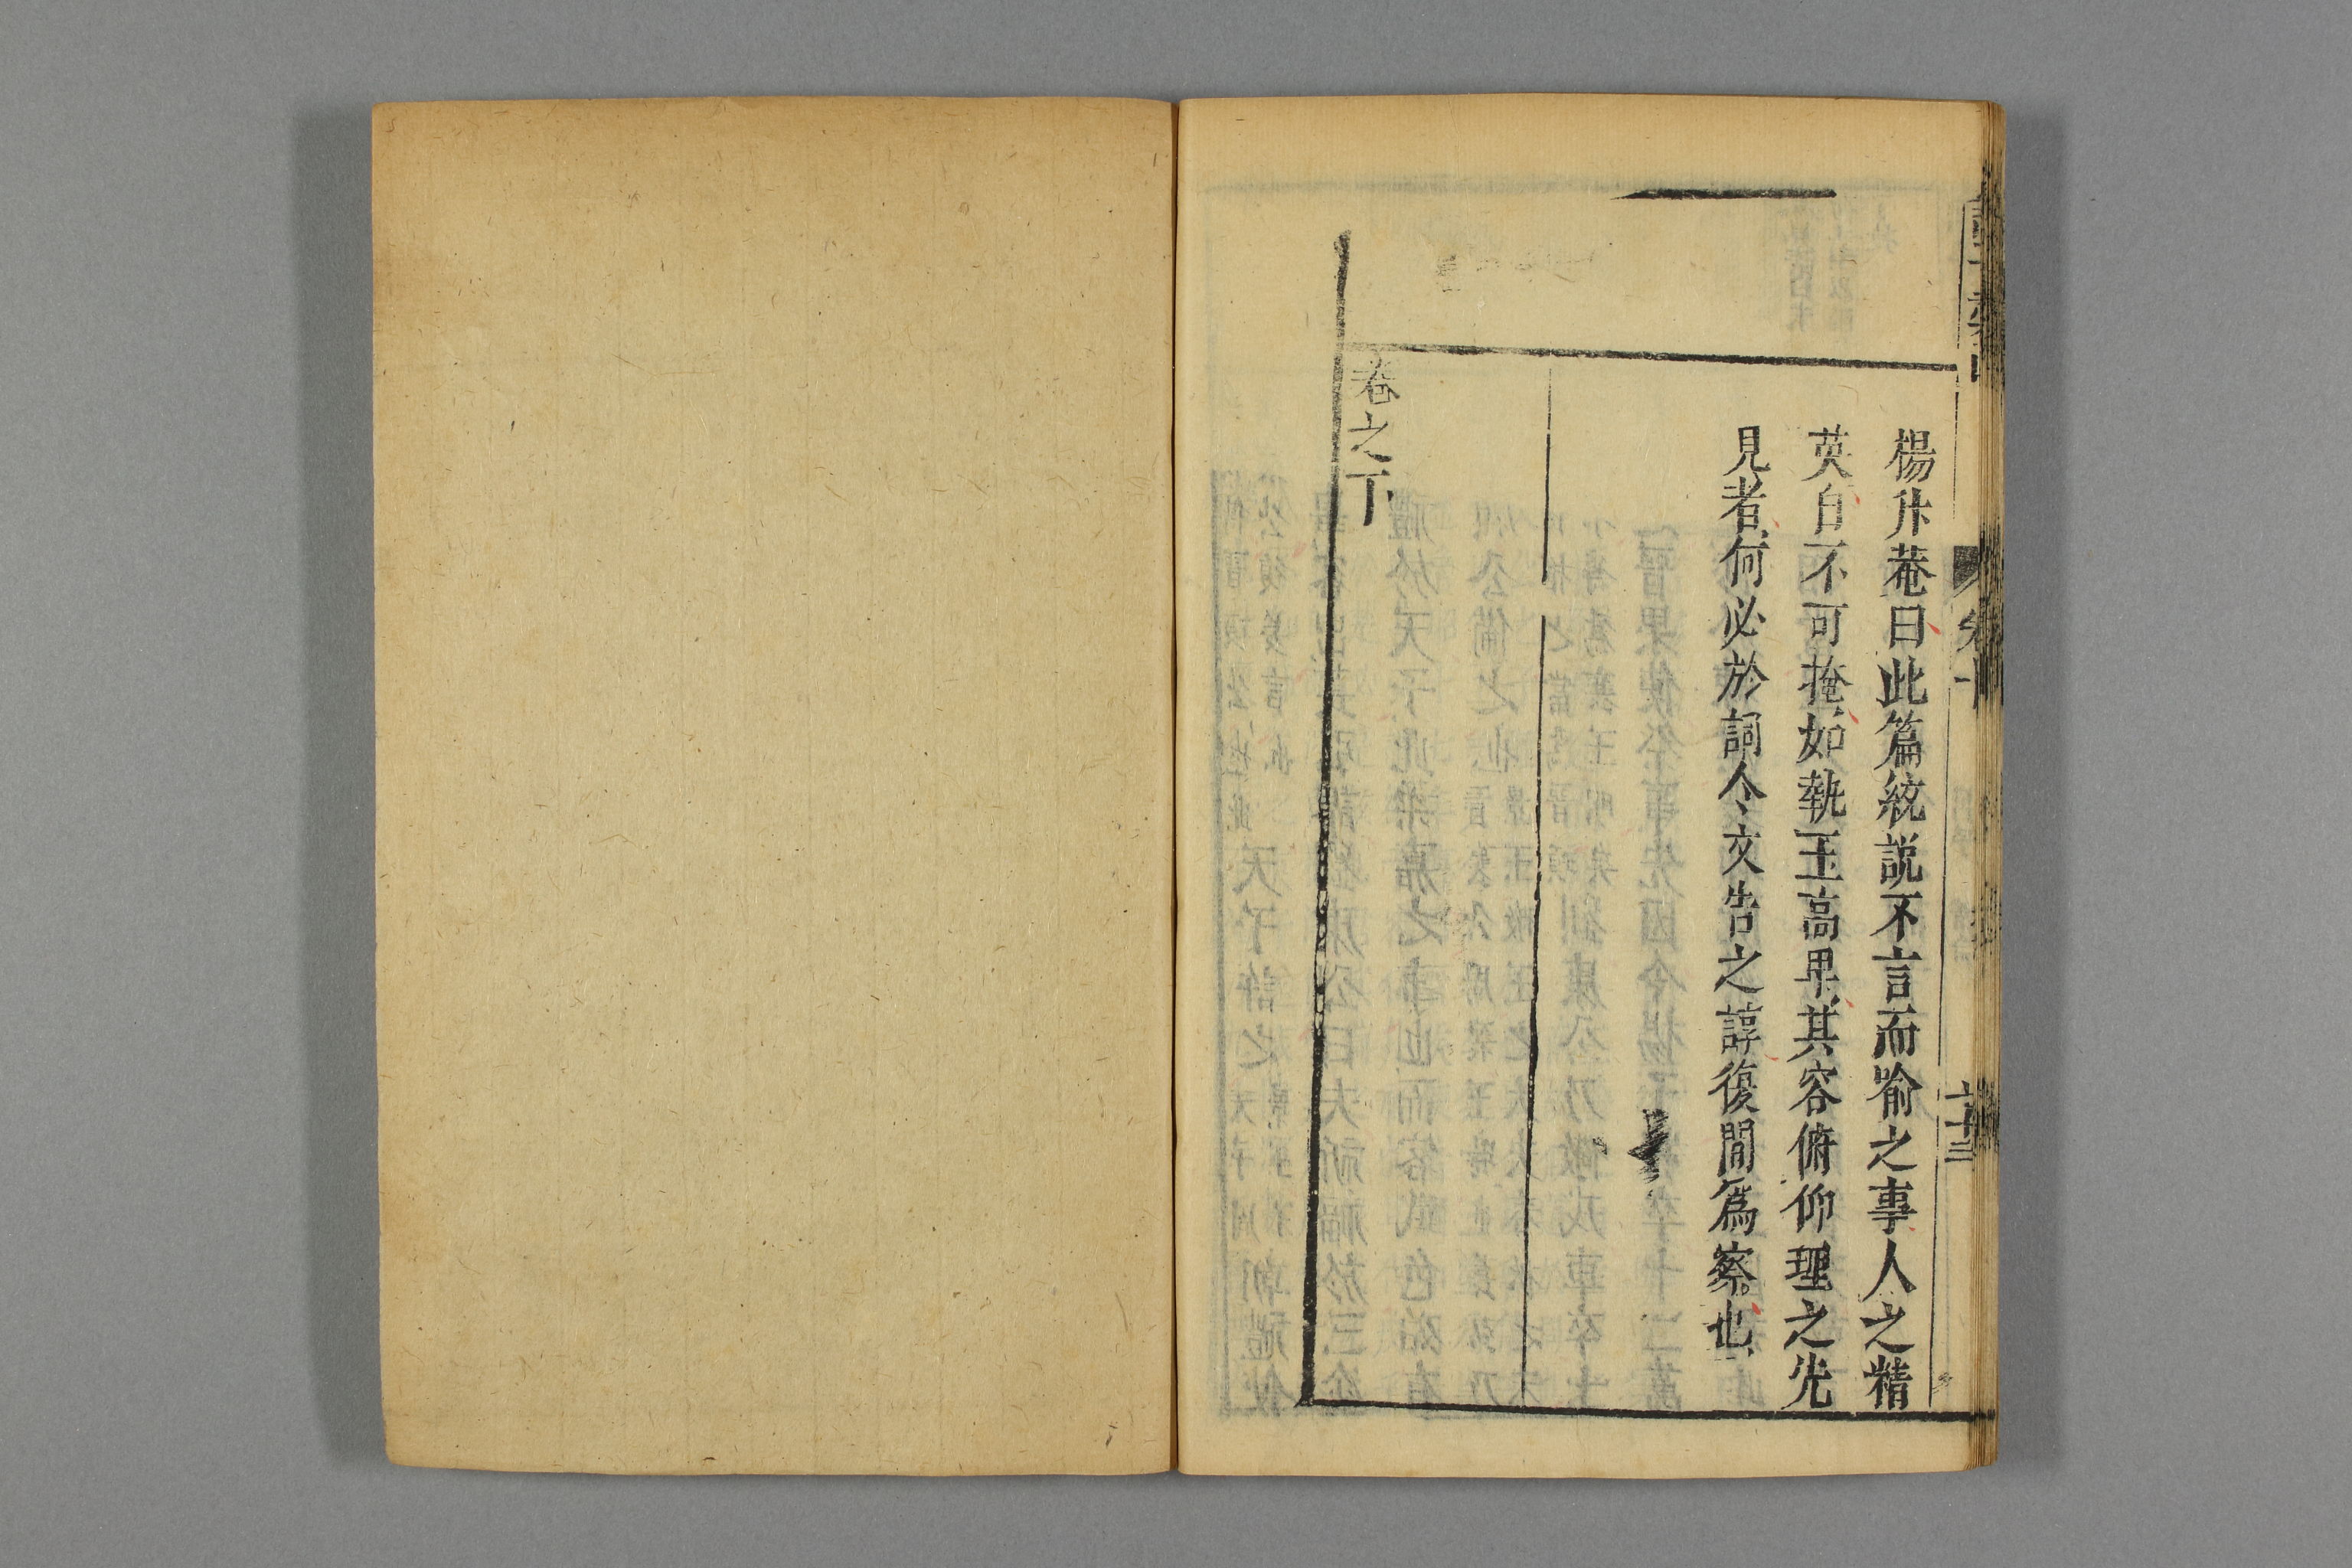 楊升菴曰此篇統説不言而喻之事人之精
英自不可掩如執玉高卑其容俯仰理之先
見者何必於詞令文告之諄復間爲察也
卷之下